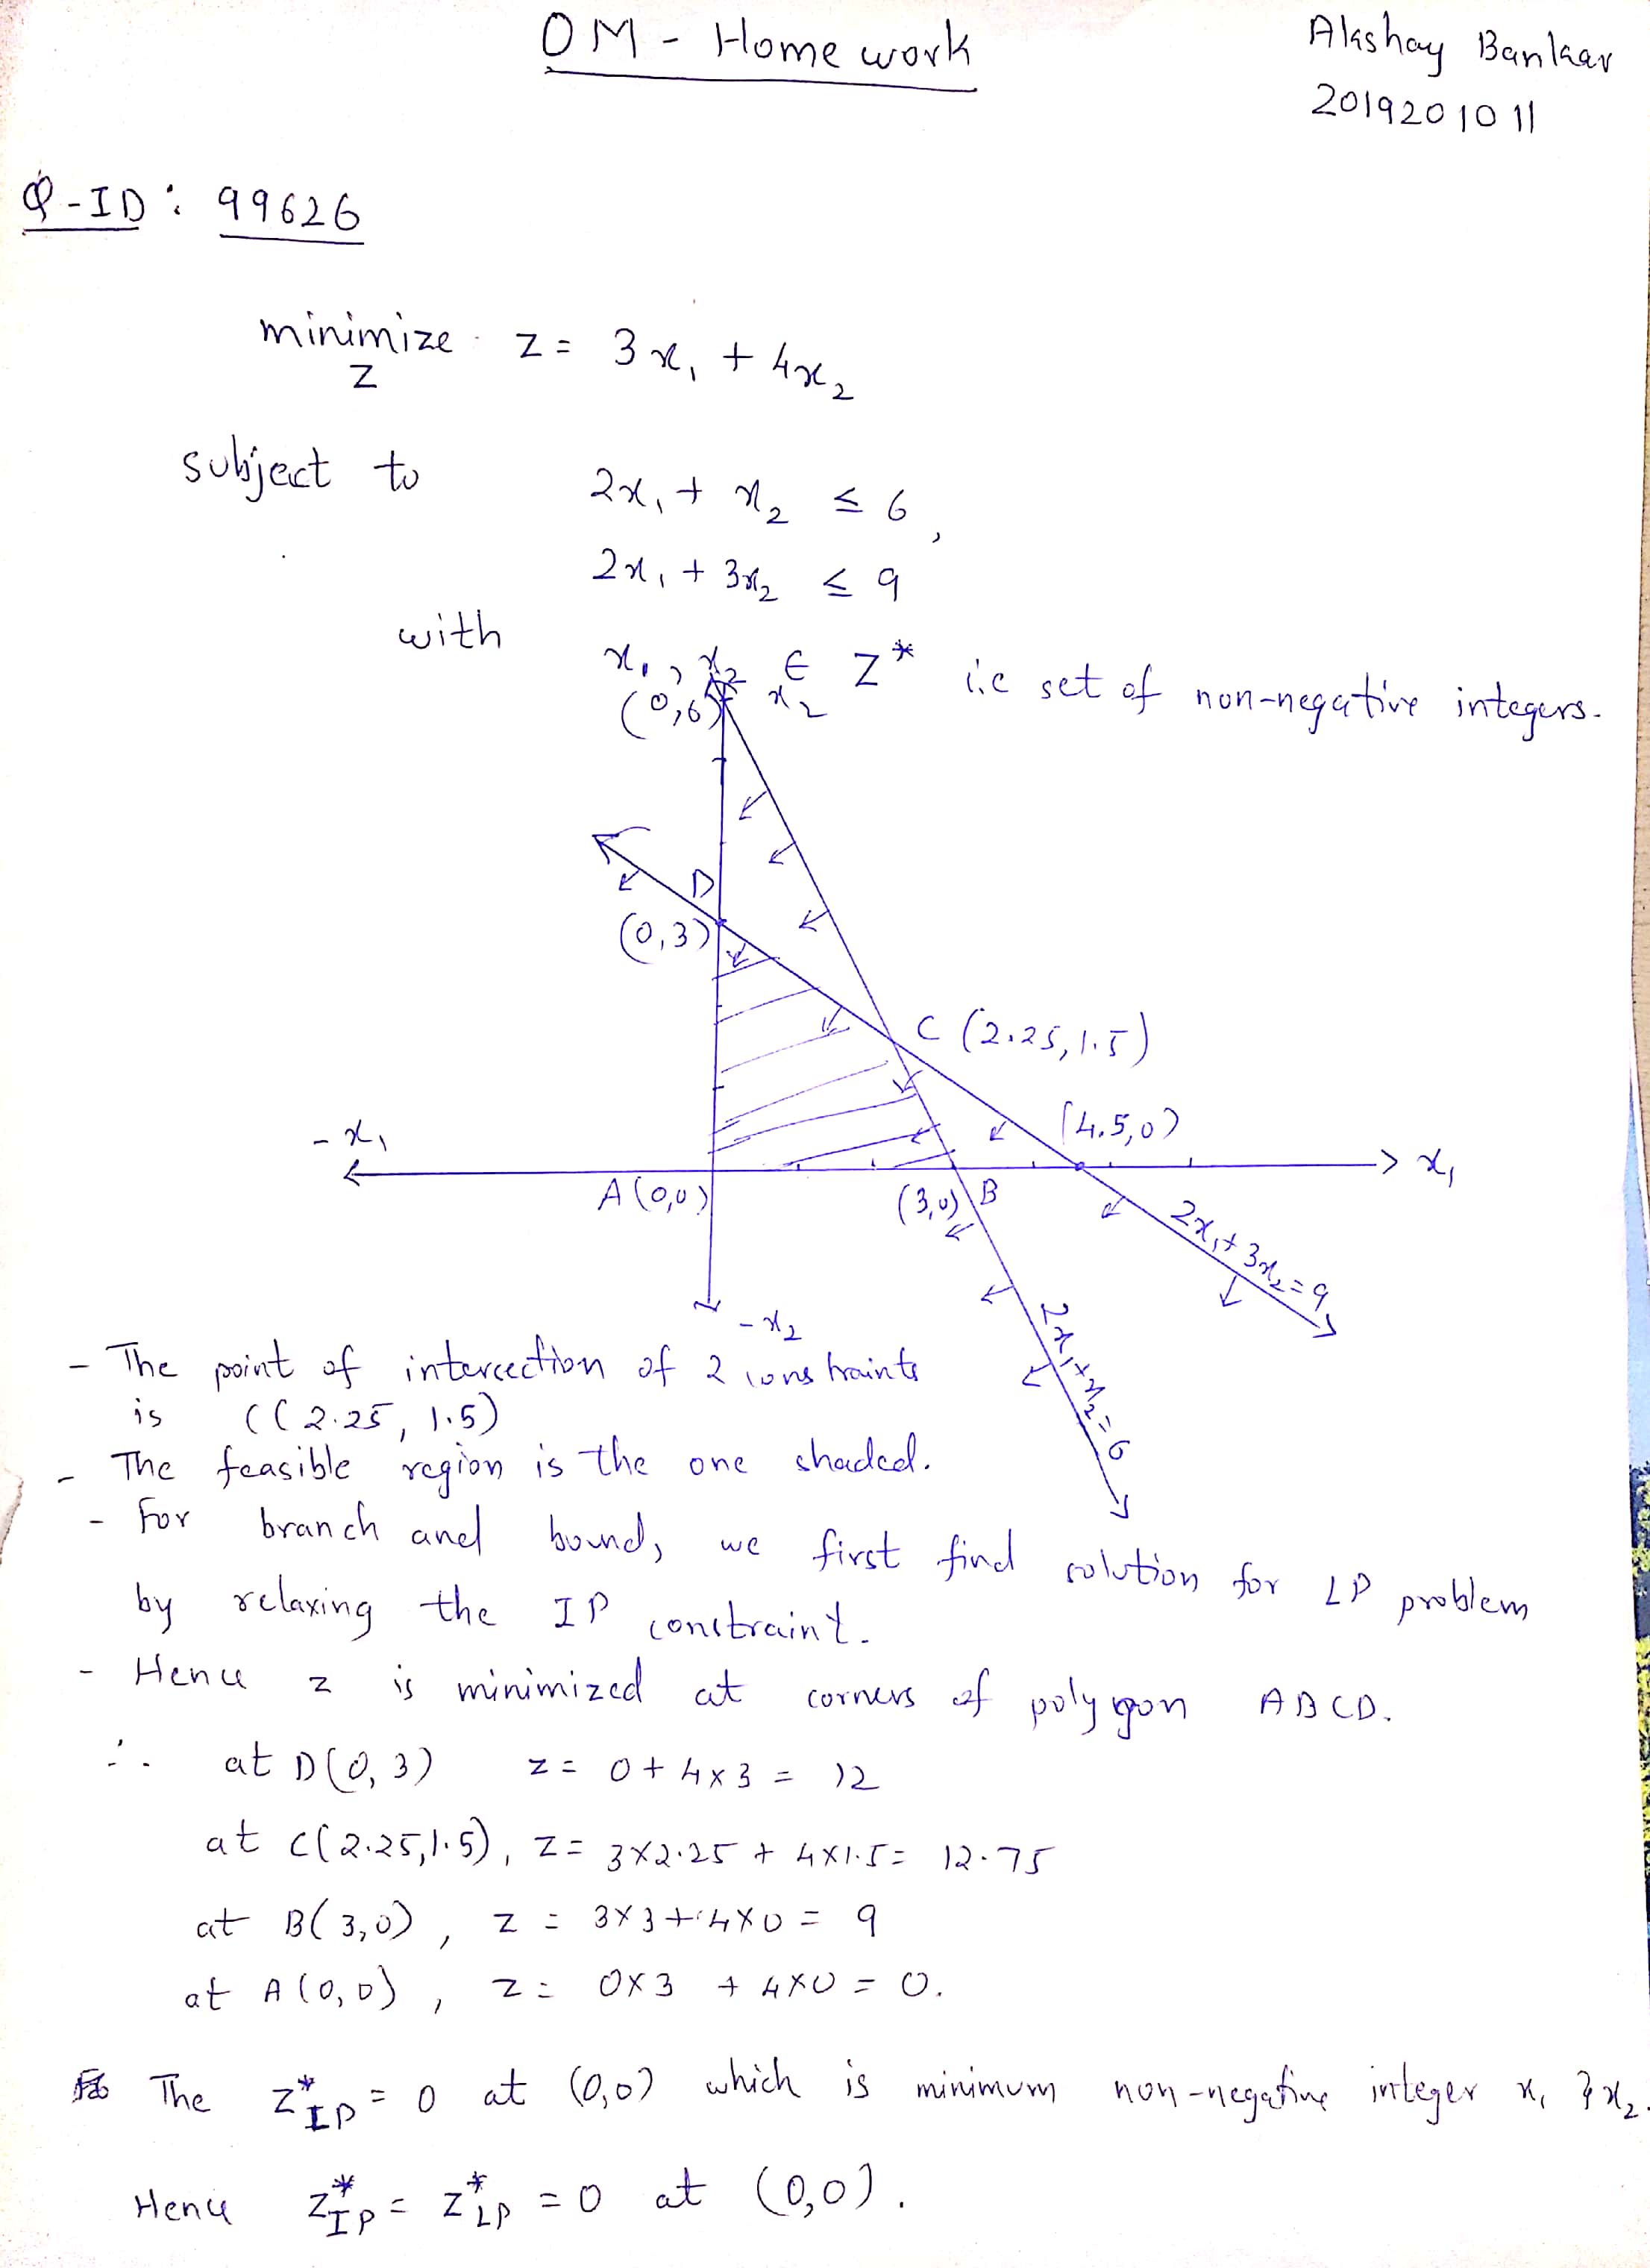 OM - Home work
Akshay Bankar
2019201011
Q-ID: 99626
minimize z = 3x₁ + 4x₂
z
subject to 2x₁ + x₂ ≤ 6,
2x₁ + 3x₂ ≤ 9
with x₁, x₂ ∈ Z* i.e set of non-negative integers.
(0,6) x₂
D
(0,3)
C (2.25, 1.5)
(4.5,0)
-x₁
x₁
A(0,0)
(3,0) B
2x₁+3x₂=9
-x₂
2x₁+x₂=6
- The point of intercection of 2 constraints
is C(2.25, 1.5)
- The feasible region is the one shaded.
- For branch and bound, we first find solution for LP problem
by relaxing the IP constraint.
- Hence z is minimized at corners of polygon ABCD.
∴ at D(0,3) z = 0 + 4×3 = 12
at C(2.25,1.5), z = 3×2.25 + 4×1.5 = 12.75
at B(3,0), z = 3×3+4×0 = 9
at A(0,0), z = 0×3 + 4×0 = 0.
The z*IP = 0 at (0,0) which is minimum non-negative integer x₁ & x₂.
Hence z*IP = z*LP = 0 at (0,0).